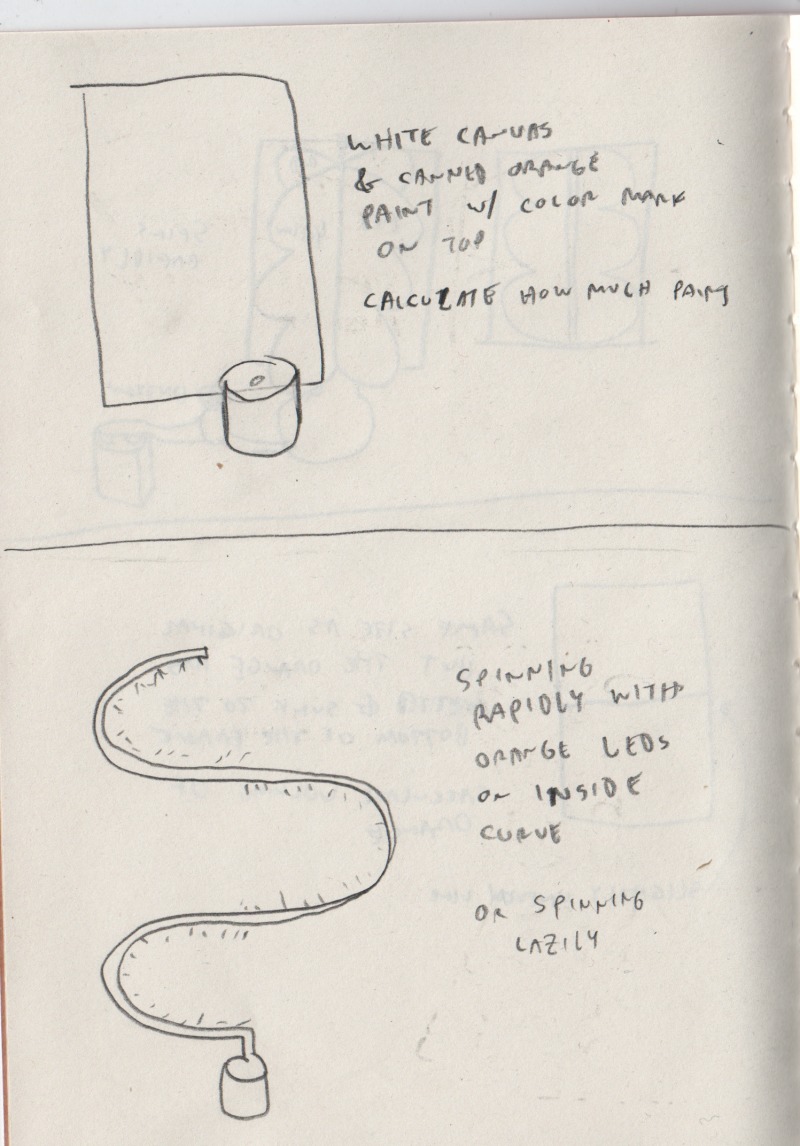 WHITE CANVAS
& CANNED ORANGE
PAINT W/ COLOR MARK
ON TOP
CALCULATE HOW MUCH PAINT
SPINNING
RAPIDLY WITH
ORANGE LEDS
ON INSIDE
CURVE
OR SPINNING
LAZILY